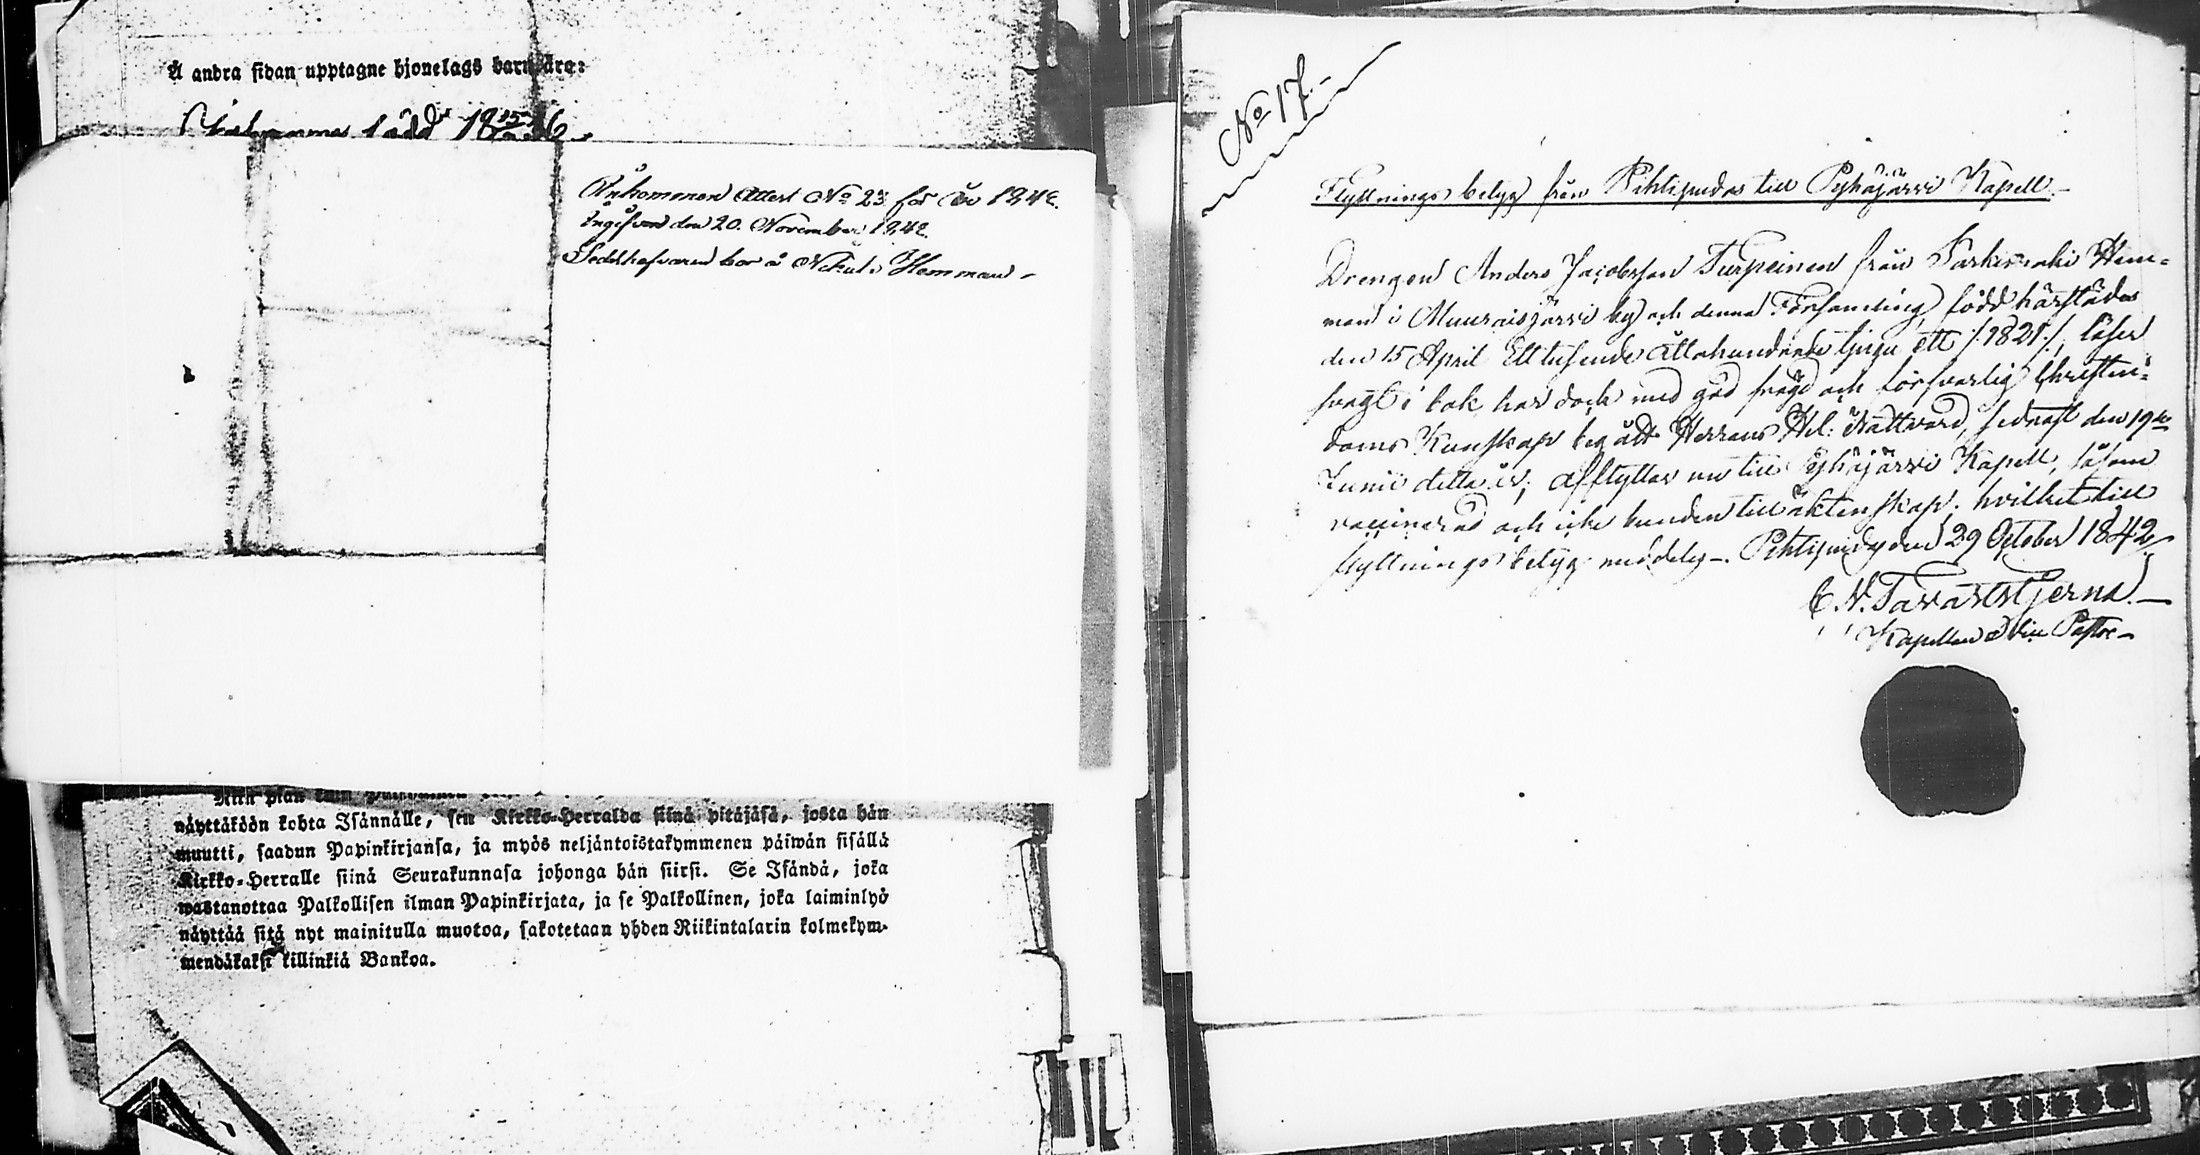 Å andra sidan upptagne hjonelags barn äro:
född 18
Ankommen Attest No 23 för År 1842.
Ingifven den 20. November 1842.
Sedelhafvaren bor å Nikula Hemman -
näyttäköön kohta Isännälle, sen Kirkko-Herralda siinä pitäjäsä, josta hän
muutti, saadun Papinkirjansa, ja myös neljäntoistakymmenen päiwän sisällä
Kirkko-Herralle siinä Seurakunnasa johonga hän siirsi. Se Isändä, joka
wastanottaa Palkollisen ilman Papinkirjata, ja se Palkollinen, joka laiminlyö
näyttää sitä nyt mainitulla muotoa, sakotetaan yhden Riikintalarin kolmekym-
mendäkaksi killinkiä Bankoa.
No 17.-
Flyttnings betyg från Pihtipudas till Pyhäjärvi Kapell.-
Drengen Anders Jacobsson Turpeinen från Särkimäki Hem-
man i Muurasjärvi by och denna Församling född härstädes
den 15 April Ett tusende åttahundrade tjugu ett /:1821:/, läser
svagt i bok har dock med god frägd och försvarlig Christen-
doms Kunskap begått Herrans Hel: Nattvard, sednast den 19de
Junii detta år; afflyttar nu till Pyhäjärvi Kapell, såsom
vaccinerad och icke bunden till äktenskap; hvilket till
flyttnings betyg meddelas -. Pihtipudas den 29 October 1842
C. N. Tavaststjerna.-
Kapellan Vice Pastor-